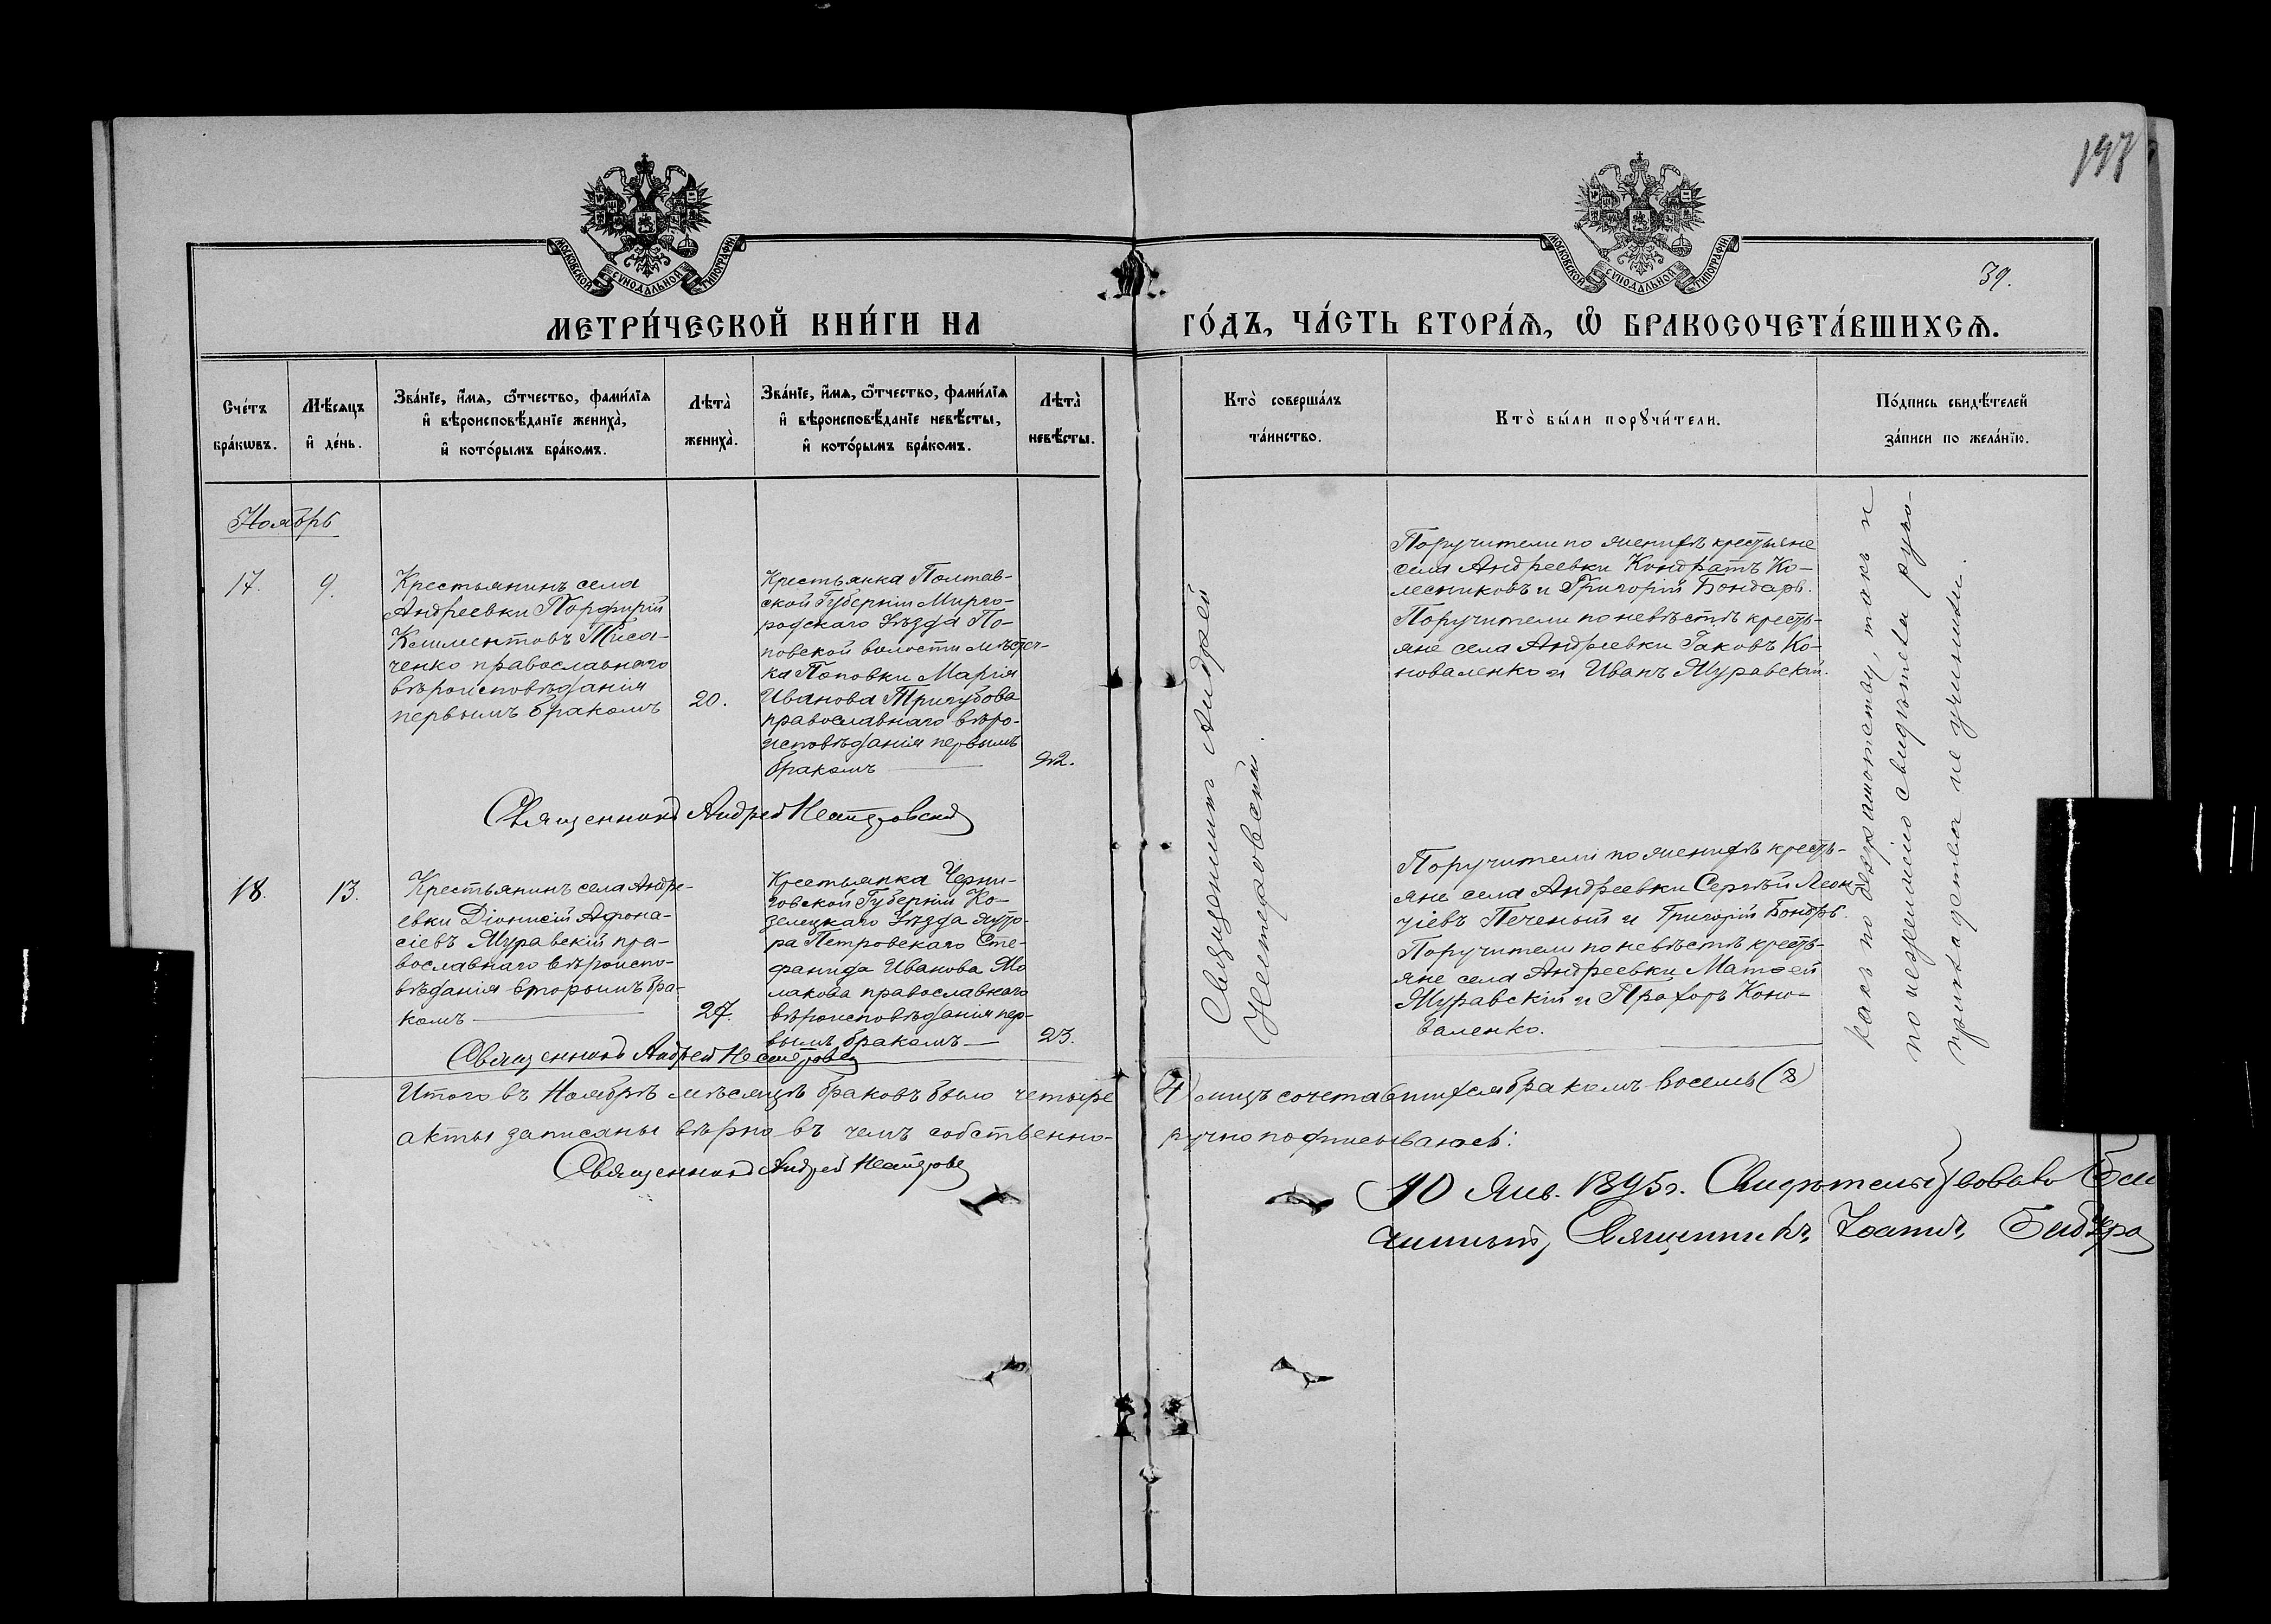 197
39.
МОСКОВСКОЙ СѴНОДАЛЬНОЙ ТИПОГРАФІИ
МОСКОВСКОЙ СѴНОДАЛЬНОЙ ТИПОГРАФІИ
МЕТРИ́ЧЕСКОЙ КНИ́ГИ НА ГО́ДЪ, ЧА́СТЬ ВТОРА́Ѧ, Ѽ БРАКОСОЧЕТА́ВШИХСѦ.
Сче́тъ бра́кѡвъ.
Мѣ́сѧцъ и҆ де́нь.
Зва́нїе, и҆́мѧ, ѻ҆́тчество, фами́лїѧ
и҆ вѣроисповѣ́данїе жениха̀,
и҆ кото́рымъ бра́комъ.
Лѣта̀ жениха̀.
Зва́нїе, и҆́мѧ, ѻ҆́тчество, фами́лїѧ
и҆ вѣроисповѣ́данїе невѣ́сты,
и҆ кото́рымъ бра́комъ.
Лѣта̀ невѣ́сты.
Кто̀ соверша́лъ
та́инство.
Кто̀ бы́ли порꙋчи́тели.
По́дпись свидѣ́телей
за́писи по жела́нїю.
Ноябрь
17.
9.
Крестьянинъ села
Андреевки Порфирій
Климентовъ
ченко православнаго
вѣроисповѣданія
первымъ бракомъ
20.
Крестьянка Полтав-
ской Губерніи Мирго-
родскаго Уѣзда По-
повской волости мѣстеч-
ка Поповки Марія
Иванова Тригубова
православнаго вѣро-
исповѣданія первымъ
бракомъ
22.
Священникъ Андрей Нестеровскій
Поручители по женихѣ крестьяне
села Андреевки Кондратъ Ко-
лесниковъ и Григорій Бондарь.
Поручители по невѣстѣ кресть-
яне села Андреевки Іаковъ Ко-
новаленко и Иванъ Муравскій.
18.
13.
Крестьянинъ села Андре-
евки Діонисій Афона-
сіевъ Муравскій пра-
вославнаго вѣроиспо-
вѣданія вторымъ бра-
комъ
27.
Крестьянка Черни-
говской Губерніи Ко-
зелецкаго Уѣзда хуто-
ра Петровскаго Сте-
фанида Иванова Мо
лакова православнаго
вѣроисповѣданія пер-
вымъ бракомъ
23.
Священникъ Андрей Нестеровск
Поручители по женихѣ кресть-
яне села Андреевки Сергѣй Леон
тіевъ Печеный и Григорій Бондрь.
Поручители по невѣстѣ кресть-
яне села Андреевки Матѳей
Муравскій и Прохоръ Коно-
валенко.
Священникъ Андрей
Нестеровскій.
Какъ по безграмотству, такъ и
по нежеланію свидѣтели руко-
прикладства не учинили.
Итого въ Ноябрѣ мѣсяцѣ браковъ было четыре (4) лицъ сочетавшихся бракомъ восемь (8)
акты записаны вѣрно въ чемъ собственно- ручно подписываюсь:
Священникъ Андрей Нестеровс
10 Янв. 1895 г. Свидѣтельствовалъ Бла
чинный, Священникъ Іоаннъ